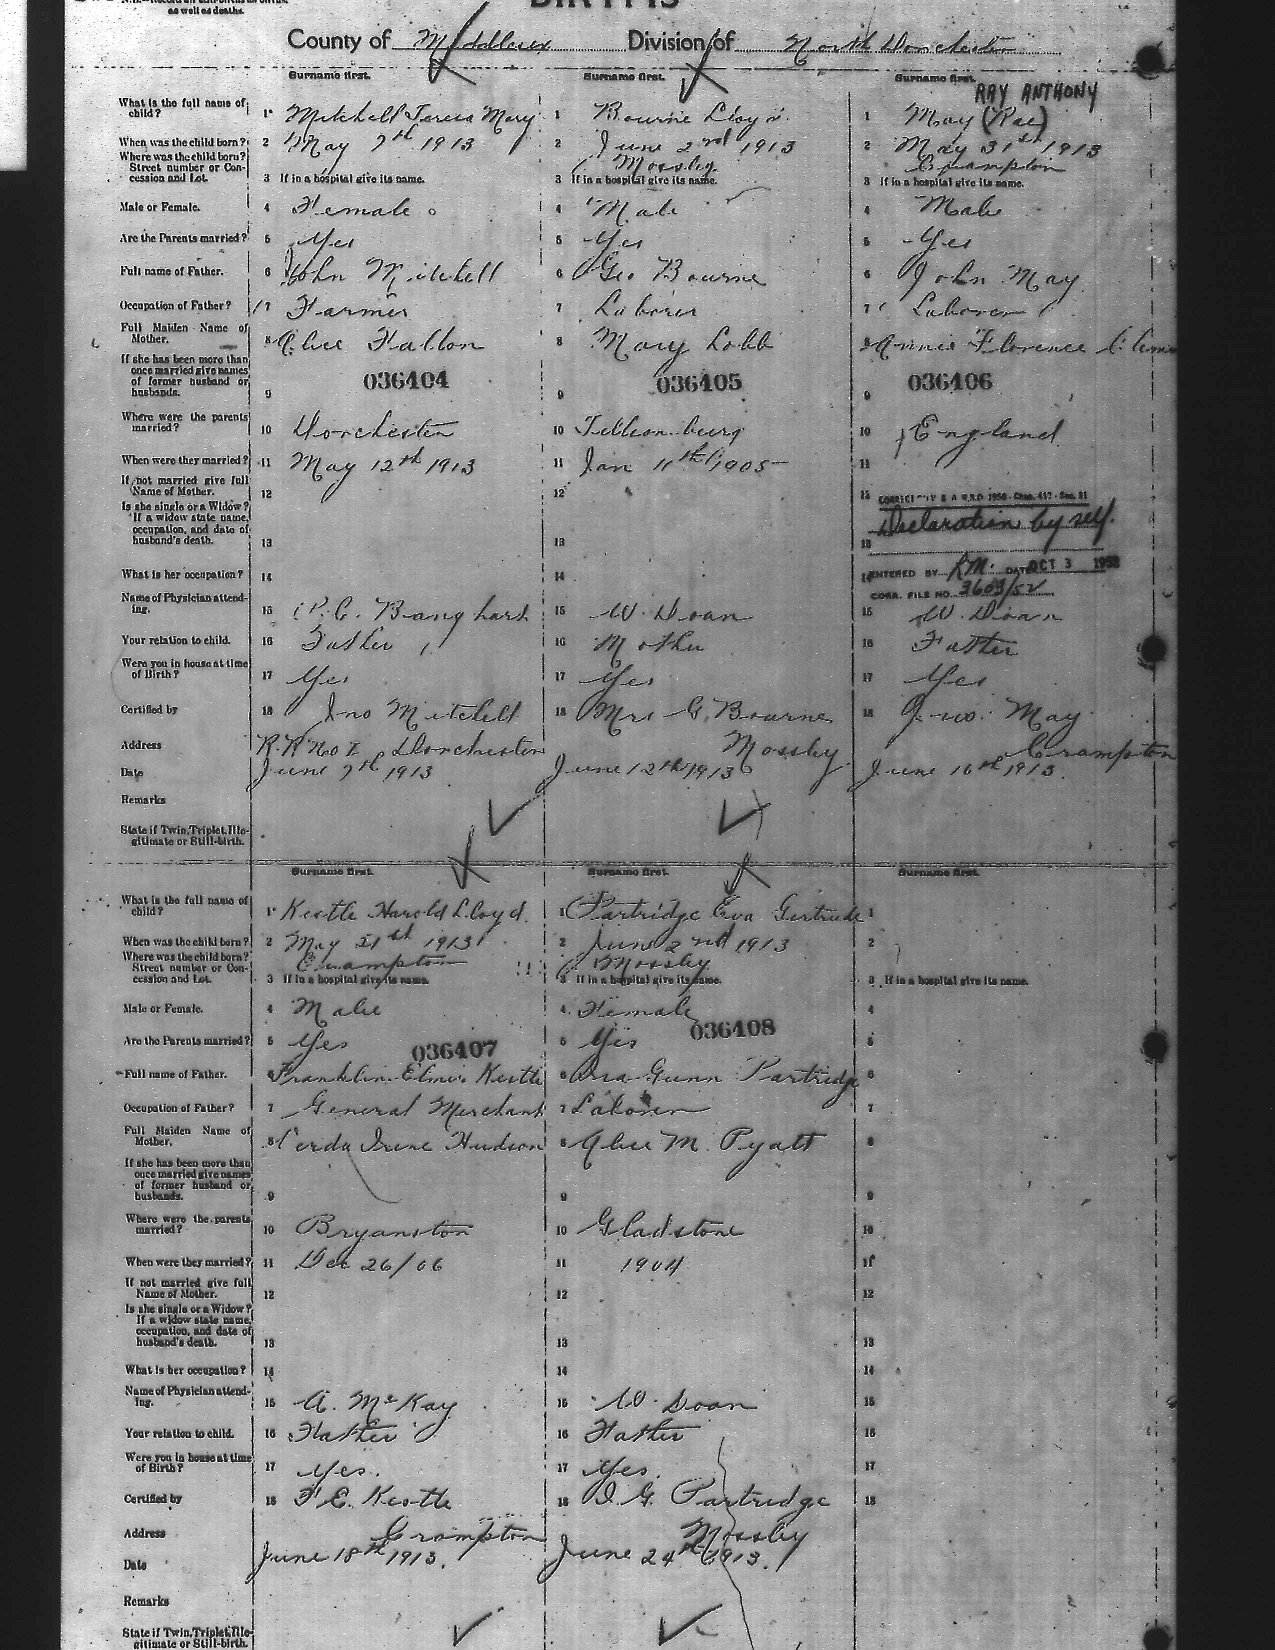 as well as deaths.
BIRTHS
County of Middlesex Division of North Dorchester
Surname first. Surname first. Surname first.
RAY ANTHONY
What is the full name of child? 1 Mitchell Teresa Mary 1 Bourne Lloyd 1 May (Rae)
When was the child born? 2 May 7th 1913 2 June 2nd 1913 2 May 31st 1913
Where was the child born? Mossley Crampton
Street number or Concession and Lot. 3 If in a hospital give its name. 3 If in a hospital give its name. 3 If in a hospital give its name.
Male or Female. 4 Female 4 Male 4 Male
Are the Parents married? 5 Yes 5 Yes 5 Yes
Full name of Father. 6 John Mitchell 6 Geo Bourne 6 John May
Occupation of Father? 7 Farmer 7 Laborer 7 Laborer
Full Maiden Name of Mother. 8 Alice Fallon 8 Mary Lobb 8 Annie Florence
If she has been more than once married give names of former husband or husbands. 9 036404 9 036405 9 036406
Where were the parents married? 10 Dorchester 10 Tillsonburg 10 England
When were they married? 11 May 12th 1913 11 Jan 11th 1905 11
If not married give full Name of Mother. 12 12 12 R.S.O 1950 - Chap. 417 - Sec. 31
Is she single or a Widow? If a widow state name, occupation, and date of husband's death. 13 13 13 Declaration by self.
What is her occupation? 14 14 14 ENTERED BY R.M. DATE OCT 3 1952
CORR. FILE NO. 3603/52
Name of Physician attending. 15 Banghart 15 W. Doan 15 W. Doan
Your relation to child. 16 Father 16 Mother 16 Father
Were you in house at time of Birth? 17 Yes 17 Yes 17 Yes
Certified by 18 Jno Mitchell 18 Mrs G. Bourne 18 Jno. May
Address R.R No 1 Dorchester Mossley Crampton
Date June 7th 1913 June 12th 1913 June 16th 1913.
Remarks
State if Twin, Triplet, Illegitimate or Still-birth.
Surname first. Surname first. Surname first.
What is the full name of child? 1 Kestle Harold Lloyd 1 Partridge Eva Gertrude 1
When was the child born? 2 May 31st 1913 2 June 2nd 1913 2
Where was the child born? Crampton Mossley
Street number or Concession and Lot. 3 If in a hospital give its name. 3 If in a hospital give its name. 3 If in a hospital give its name.
Male or Female. 4 Male 4 Female 4
Are the Parents married? 5 Yes 036407 5 Yes 036408 5
Full name of Father. 6 Franklin Elmer Kestle 6 Gunn Partridge 6
Occupation of Father? 7 General Merchant 7 Laborer 7
Full Maiden Name of Mother. 8 Irene Hudson 8 Alice M. Pyatt 8
If she has been more than once married give names of former husband or husbands. 9 9 9
Where were the parents married? 10 Bryanston 10 Gladstone 10
When were they married? 11 Dec 26/06 11 1904 11
If not married give full Name of Mother. 12 12 12
Is she single or a Widow? If a widow state name, occupation, and date of husband's death. 13 13 13
What is her occupation? 14 14 14
Name of Physician attending. 15 A. McKay 15 W. Doan 15
Your relation to child. 16 Father 16 Father 16
Were you in house at time of Birth? 17 Yes. 17 Yes. 17
Certified by 18 F E. Kestle 18 G. Partridge 18
Address Crampton Mossley
Date June 18th 1913. June 24th 1913.
Remarks
State if Twin, Triplet, Illegitimate or Still-birth.